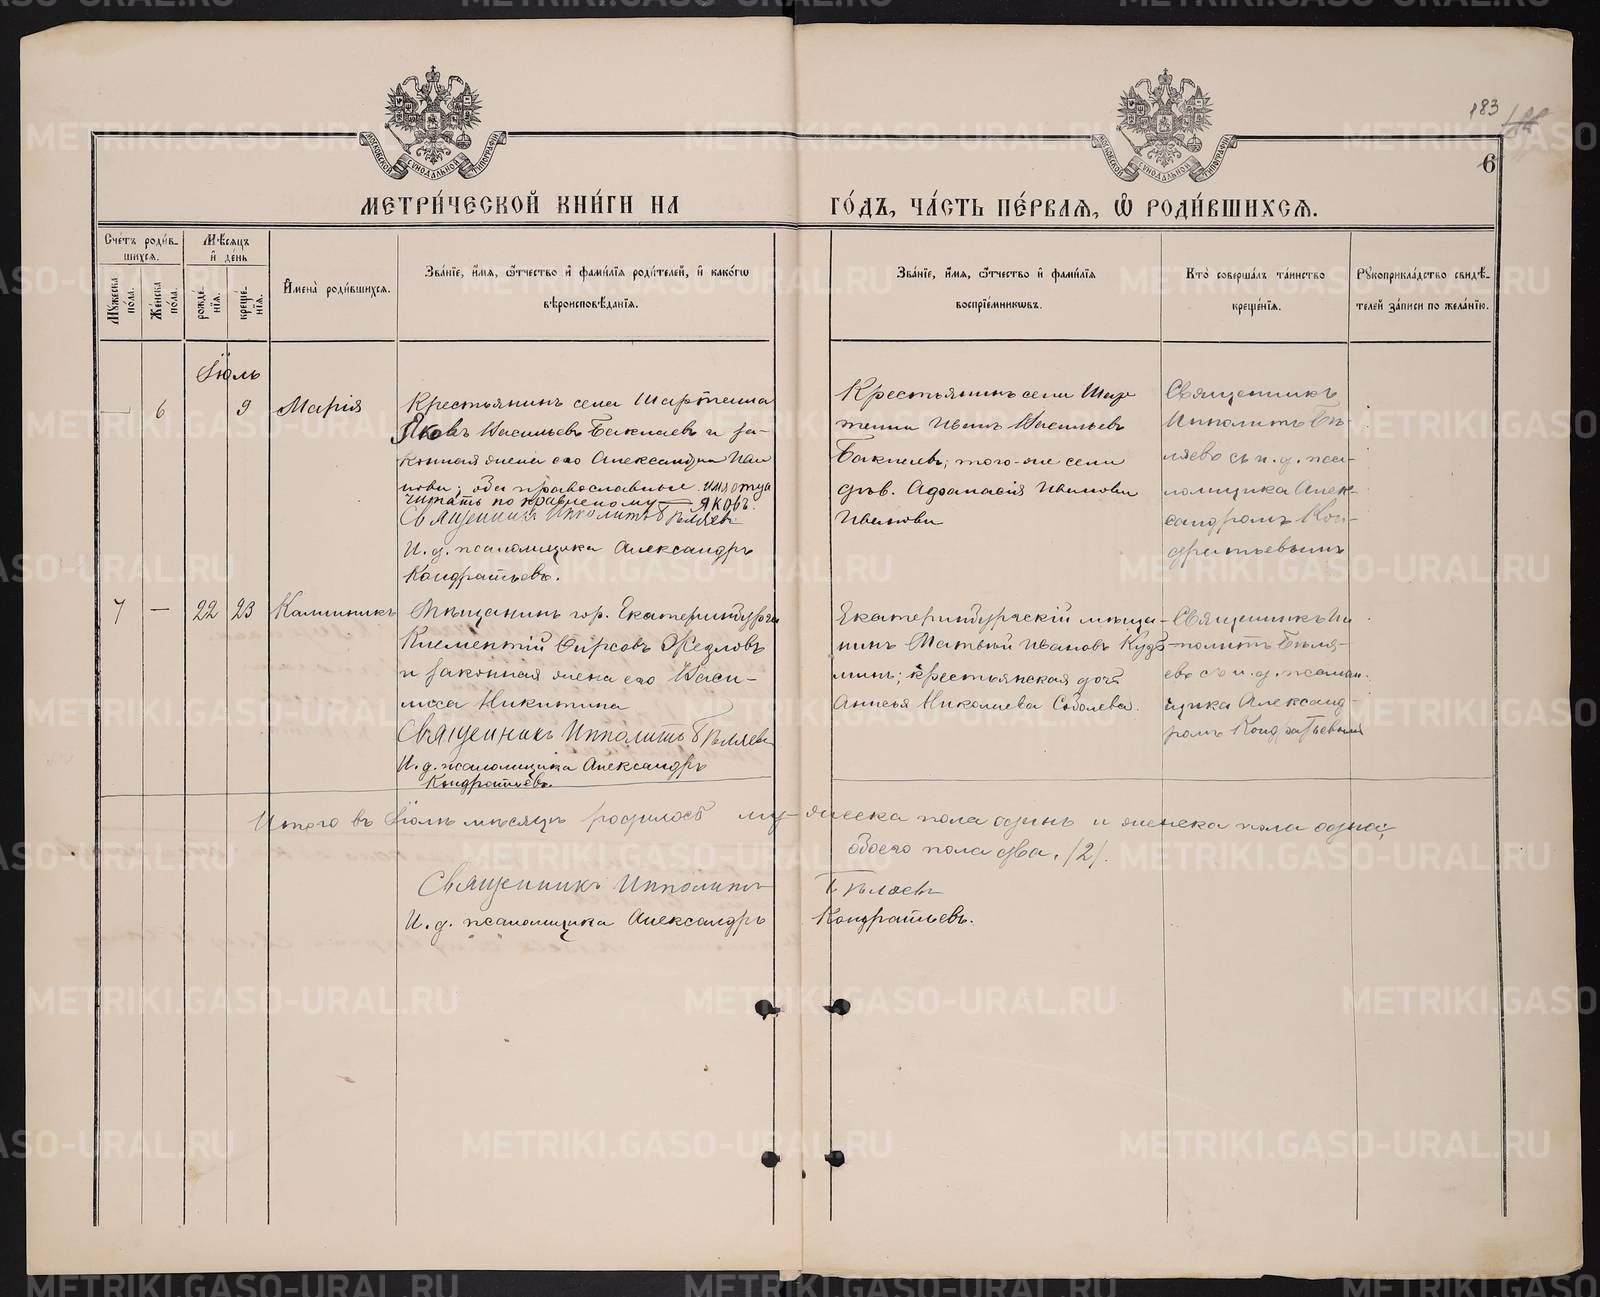 183
6
МОСКОВСКОЙ СУНОДАЛЬНОЙ ТИПОГРАФІИ
МОСКОВСКОЙ СУНОДАЛЬНОЙ ТИПОГРАФІИ
МЕТРИ́ЧЕСКОЙ КНИ́ГИ НА ГО́ДЪ, ЧА́СТЬ ПЕ́РВАѦ, Ѡ҆ РОДИ́ВШИХСѦ.
Сче́тъ роди́в-
шихсѧ.
Мꙋ́жеска по́ла.
Же́нска по́ла.
Мѣ́сѧцъ
и҆ де́нь
рожде́-
нїѧ.
креще́-
нїѧ.
И҆мена̀ роди́вшихсѧ.
Зва́нїе, и҆́мѧ, ѻ҆́тчество и҆ фами́лїѧ роди́телей, и҆ како́гѡ
вѣроисповѣ́данїѧ.
Зва́нїе, и҆́мѧ, ѻ҆́тчество и҆ фами́лїѧ
воспрїе́мникѡвъ.
Кто̀ соверша́лъ та́инство
креще́нїѧ.
Рꙋкоприкла́дство свидѣ́-
телей за́писи по жела́нїю.
Іюль
— 6 9 Марія
Крестьянинъ села Шарташа
Яковъ Васильевъ Баклаевъ и за-
конная жена его Александра Ива
нова; оба православные. имя отца
читать по правленому — Яковъ.
Священникъ Ипполитъ Бѣляевъ
И. д. псаломщика Александръ
Кондратьевъ.
Крестьянинъ села Шар
таша Иванъ Васильевъ
Баклаевъ; того-же села
дѣв. Афанасія Иванова
Иванова
Священникъ
Ипполитъ Бѣ-
ляевъ съ и. д. пса-
ломщика Алек-
сандромъ Кон-
дратьевымъ
7 — 22 23 Каллиникъ
Мѣщанинъ гор. Екатеринбурга
Климентій Фирсовъ
и законная жена его Васи-
лисса Никитина
Священникъ Ипполитъ Бѣляевъ
И. д. псаломщика Александръ
Кондратьевъ.
Екатеринбургскій мѣща-
нинъ Матвѣй Ивановъ Кузь-
минъ; крестьянская дочь
Анисья Николаева Соболева.
Священникъ Ип
политъ Бѣля-
евъ съ и. д. псалом
щика Александ-
ромъ Кондратьевымъ
Итого въ Іюлѣ мѣсяцѣ родилось му-жеска пола одинъ и женска пола одна;
обоего пола два. /2/.
Священникъ Ипполитъ Бѣляевъ
И. д. псаломщика Александръ Кондратьевъ.
METRIKI.GASO-URAL.RU